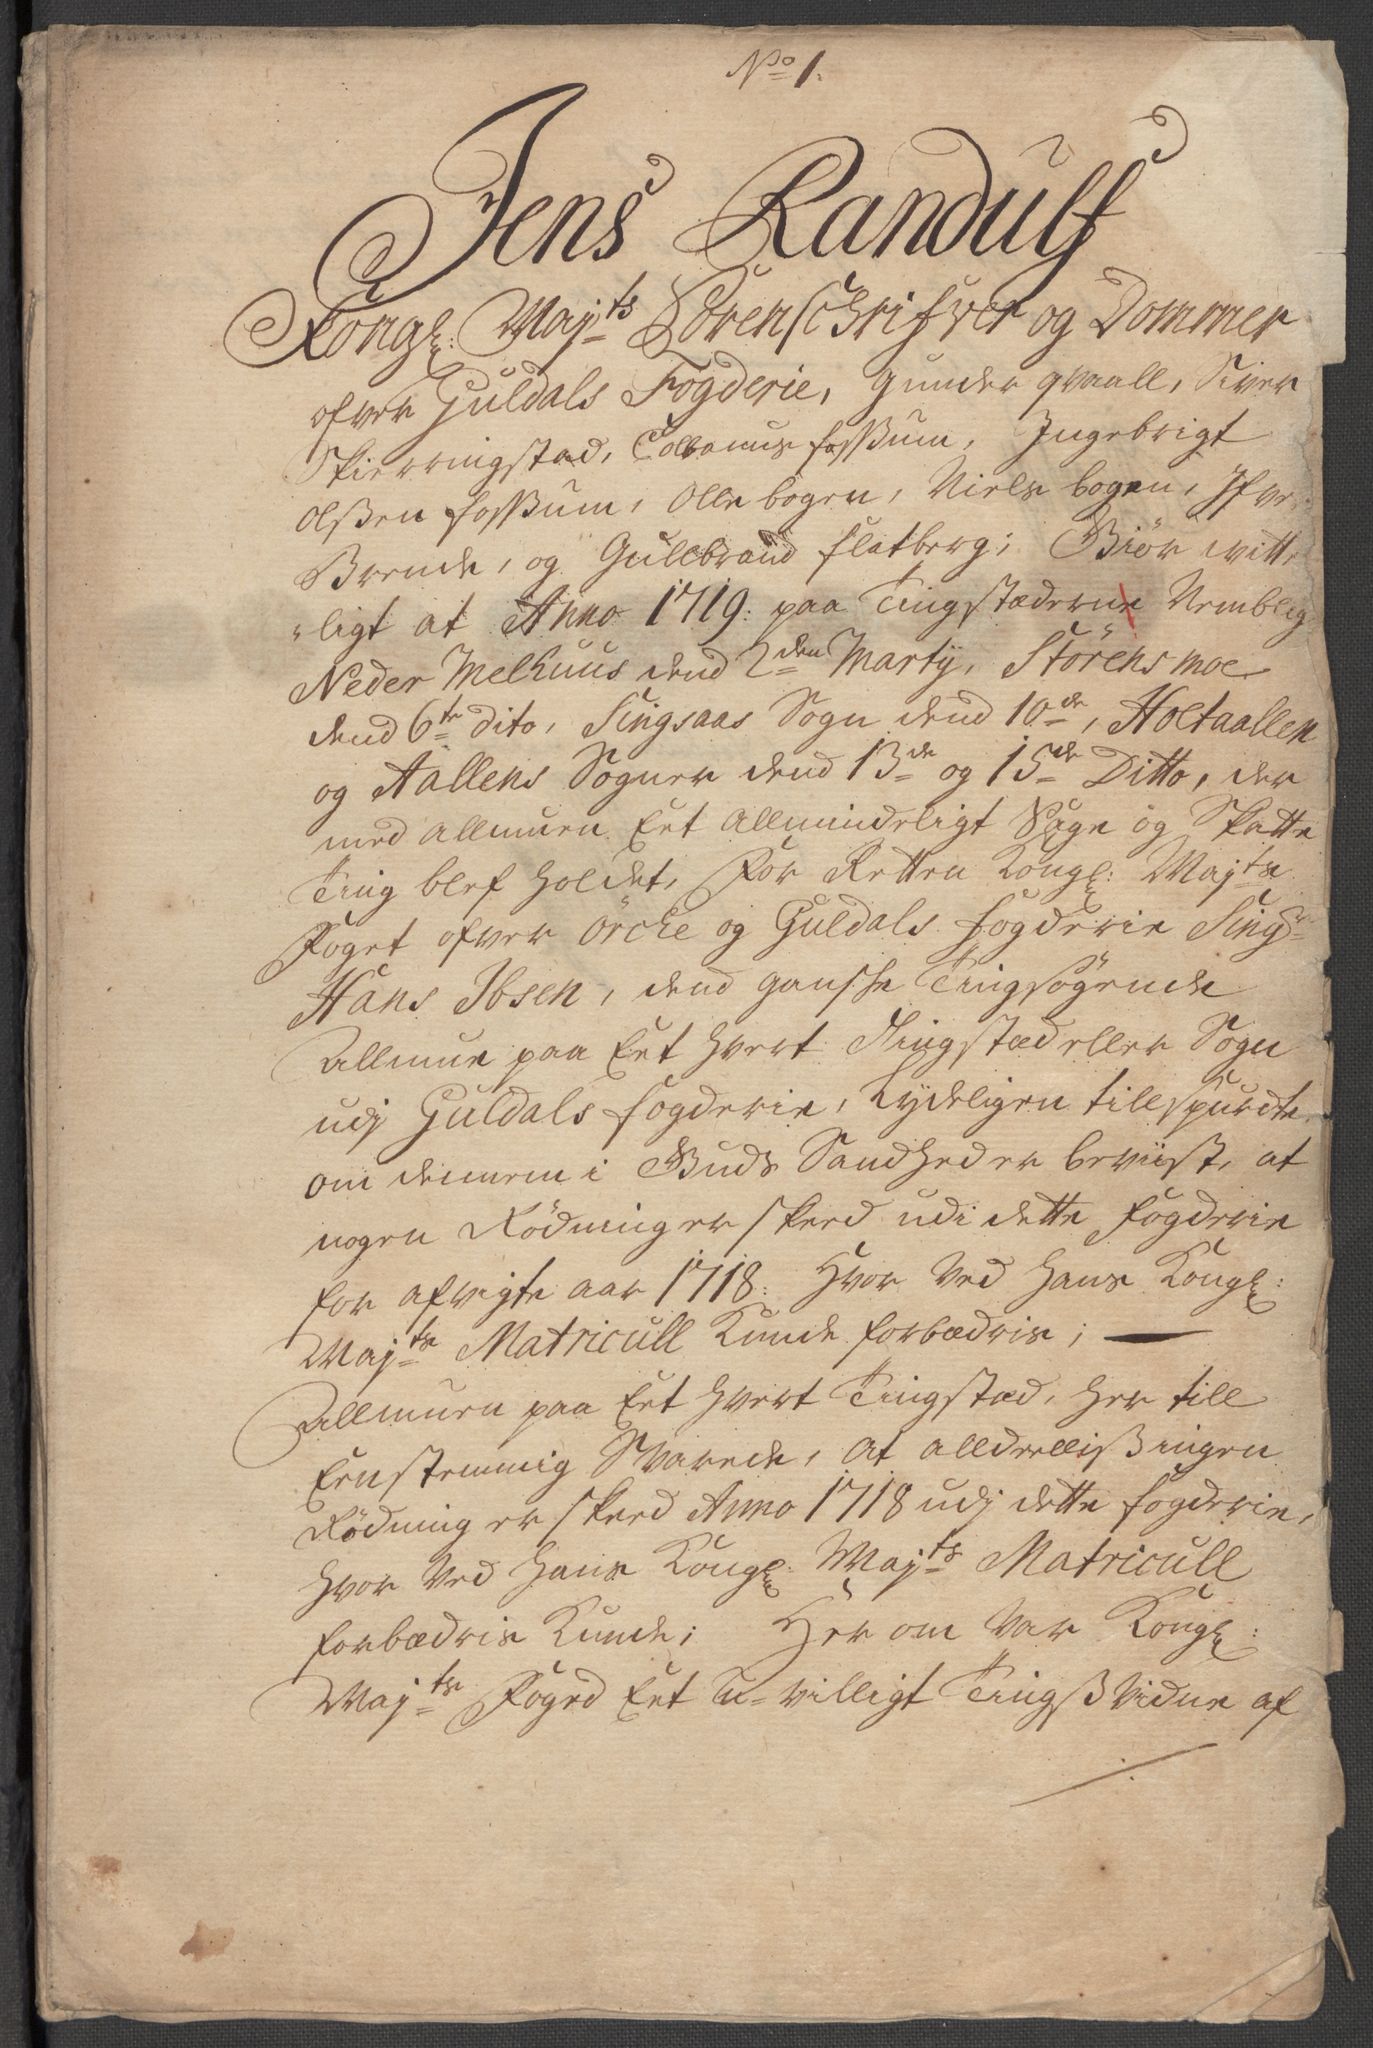 No 1.
Jens Randulf
Kongl: Mayts Sorenschrifver og Dommer
ofver Guldals Fogderie, Gunder qvaall, Siver
Skierringstad, Tollonus fossum, Ingebrigt
Olßen fossum, Olle bogen, Niels bogen, Ifver
Brende, og Gullbrand flatberg; Giör witt-
"ligt at Anno 1719: paa Tingstæderne Nemblig
Neder Melhuus dend 2den Marty, Störensmoe
dend 6te dito, Singsaas Sogn dend 10de, Holtaallen
og Aallens Sogner dend 13de og 15de Ditto, der
med allmuen Eet Allmindeligt Sage og Skatte
Ting blef holdet, For Retten Kongl: Mayts
Foget ofver Örcke og Guldals fogderie Singr
Hans Ibsen, dend gansche Tingsögende
Allmue paa Eet hvert Tingstæd eller Sogn
udj Guldals fogderie, Lydeligen tillspurdte,
om dennem i Guds Sandhed er beviist, at
nogen Rödning er skeed udi dette fogderie
for afvigte aar 1718: Hvor ved hans Kongl:
Mayts Matricull Kunde forbædris;
Allmuen paa Eet hvert Tingstæd, her till
Eenstemmig Svarede, at alldeelliß ingen
Rödning er skeed Anno 1718 udj dette fogderie,
hvor ved hans Kongl: Mayts Matricull
forbædris Kunde; Her om var Kongl:
Mayts Foged Eet Tu-villigt Tingß vidne af